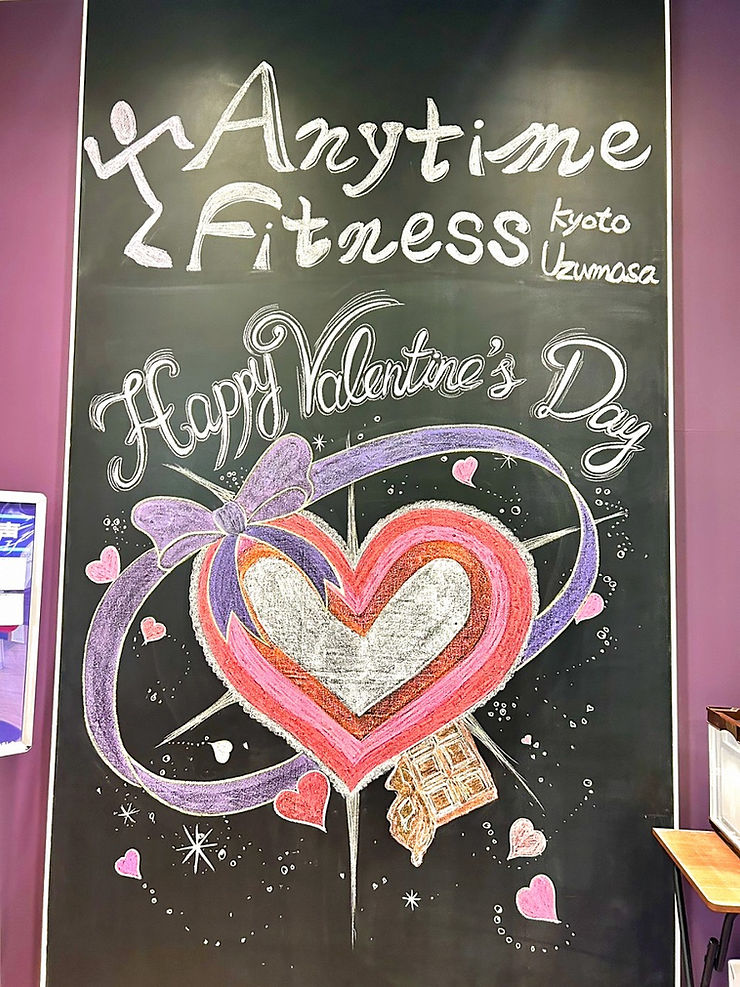 Anytime
Fitness
Kyoto
Uzumasa
Happy Valentine's Day
声